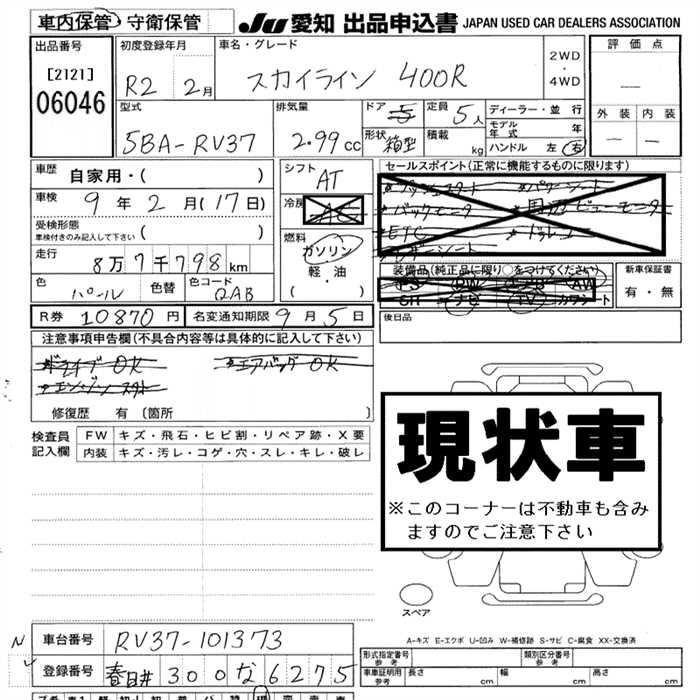 車内保管・守衛保管
JU 愛知 出品申込書 JAPAN USED CAR DEALERS ASSOCIATION
出品番号
[2121]
06046
初度登録年月
R2 2月
車名・グレード
スカイライン 400R
2WD
・
4WD
評価点
—
外装 内装
— —
型式
5BA-RV37
排気量
2.99cc
ドア 5
形状 箱型
定員 5人
積載 kg
ディーラー・並行
モデル年式 年
ハンドル 左 右
車歴
自家用・( )
車検
9年2月(17日)
受検形態
車検付きのみ記入して下さい ( )
走行
8万7千798km
色 パール
色替
色コード QAB
シフト
AT
冷房
AC
燃料
ガソリン
軽・油
( ・ )
セールスポイント(正常に機能するものに限ります)
プッシュスタート *パワーシート
*バックモニター *周囲ビューモニター
ETC *ドラレコ
装備品(純正品に限り○をつけてください)
PS PW AB AW
SR ナビ TV カワシート
新車保証書
有・無
R券 10870円
名変通知期限 9月5日
後日品
注意事項申告欄(不具合内容等は具体的に記入して下さい)
*ドライブ OK *エアバッグ OK
*エンジンスタート
修復歴 有 〔箇所 〕
検査員記入欄
FW キズ・飛石・ヒビ割・リペア跡・X要
内装 キズ・汚レ・コゲ・穴・スレ・キレ・破レ
現状車
※このコーナーは不動車も含み
ますのでご注意下さい
スペア
A-キズ E-エクボ U-凹み W-補修跡 S-サビ C-腐食 XX-交換済
車台番号 RV37-101373
登録番号 春日井 300 な 6275
形式指定番号 参考
類別区分番号 参考
車証明用 参考
長さ cm
幅 cm
高さ cm